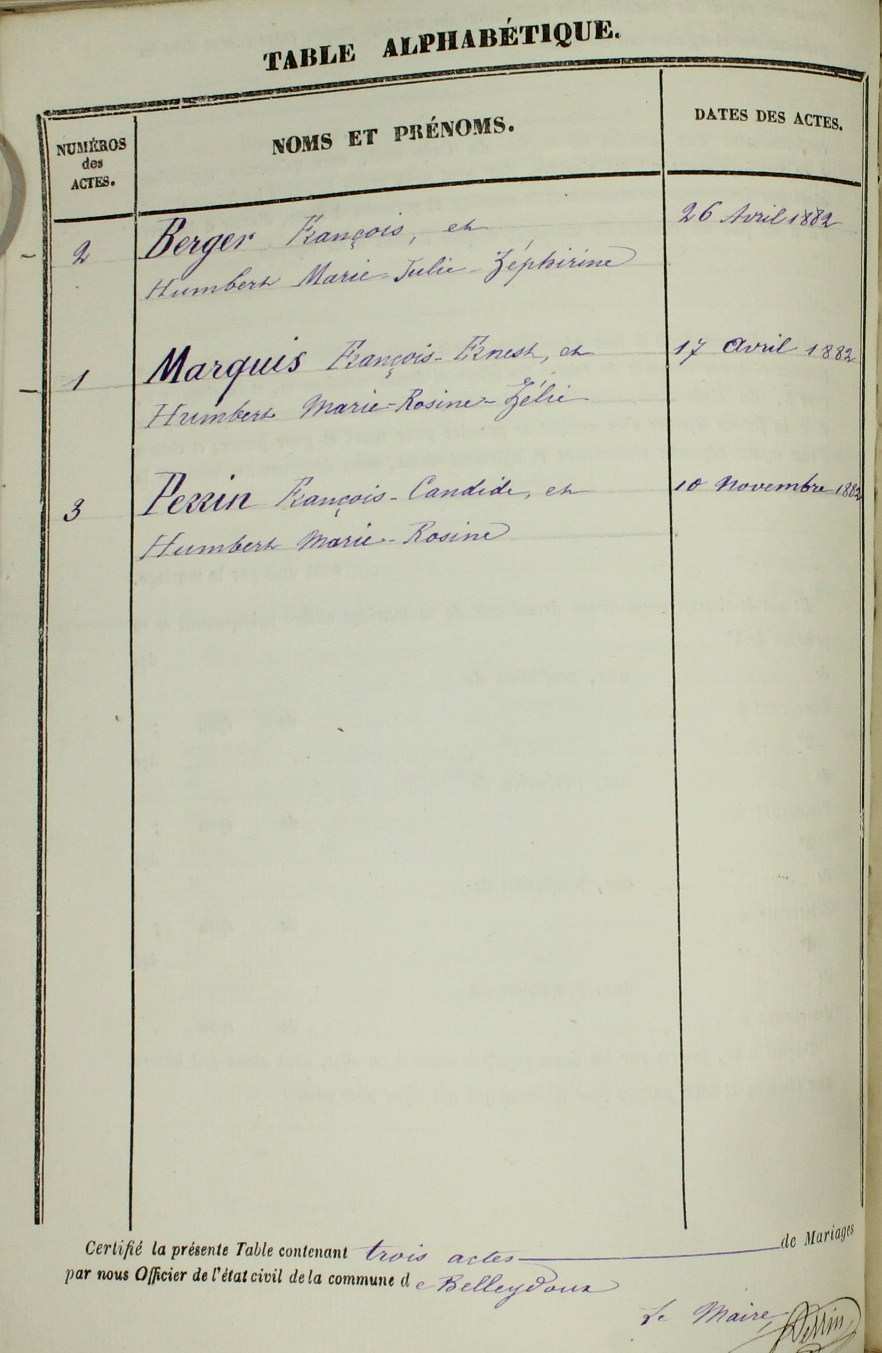 TABLE ALPHABÉTIQUE.
NUMÉROS
des
ACTES.
NOMS ET PRÉNOMS.
DATES DES ACTES.
2 Berger François, et 26 Avril 1882
Humbert Marie-Julie-Zéphirine
1 Marquis François-Ernest, et 17 avril 1882
Humbert Marie-Rosine-Zélie
3 Perrin François-Candide, et 10 novembre 1882
Humbert Marie-Rosine
Certifié la présente Table contenant trois actes de Mariages
par nous Officier de l'état civil de la commune de Belleydoux
Le Maire, Perrin